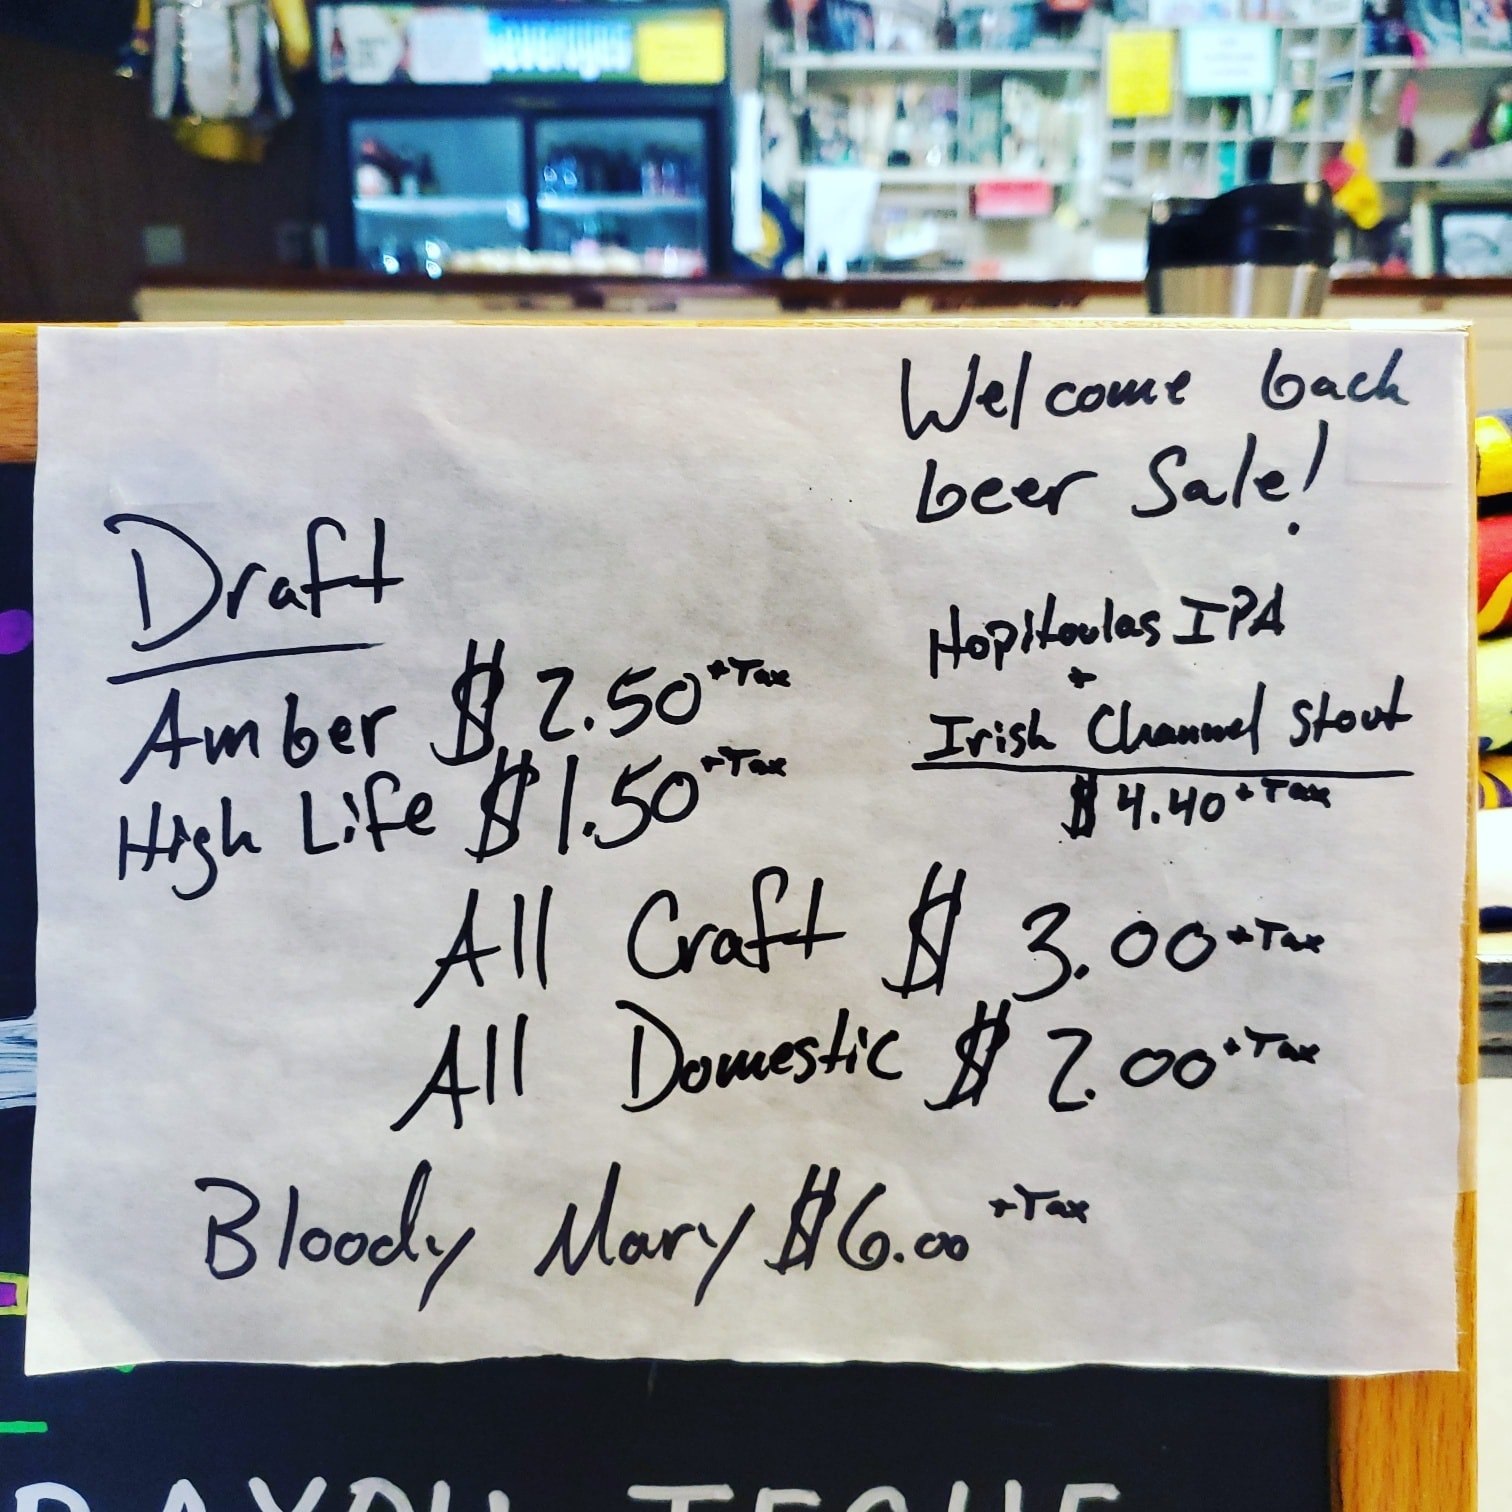 beverages
Welcome back
beer Sale!
Draft
Amber $2.50 +Tax
High Life $1.50 +Tax
Hopitoulas IPA
+
Irish Channel Stout
$4.40 +Tax
All Craft $3.00 +Tax
All Domestic $2.00 +Tax
Bloody Mary $6.00 +Tax
BAYOU TECHE